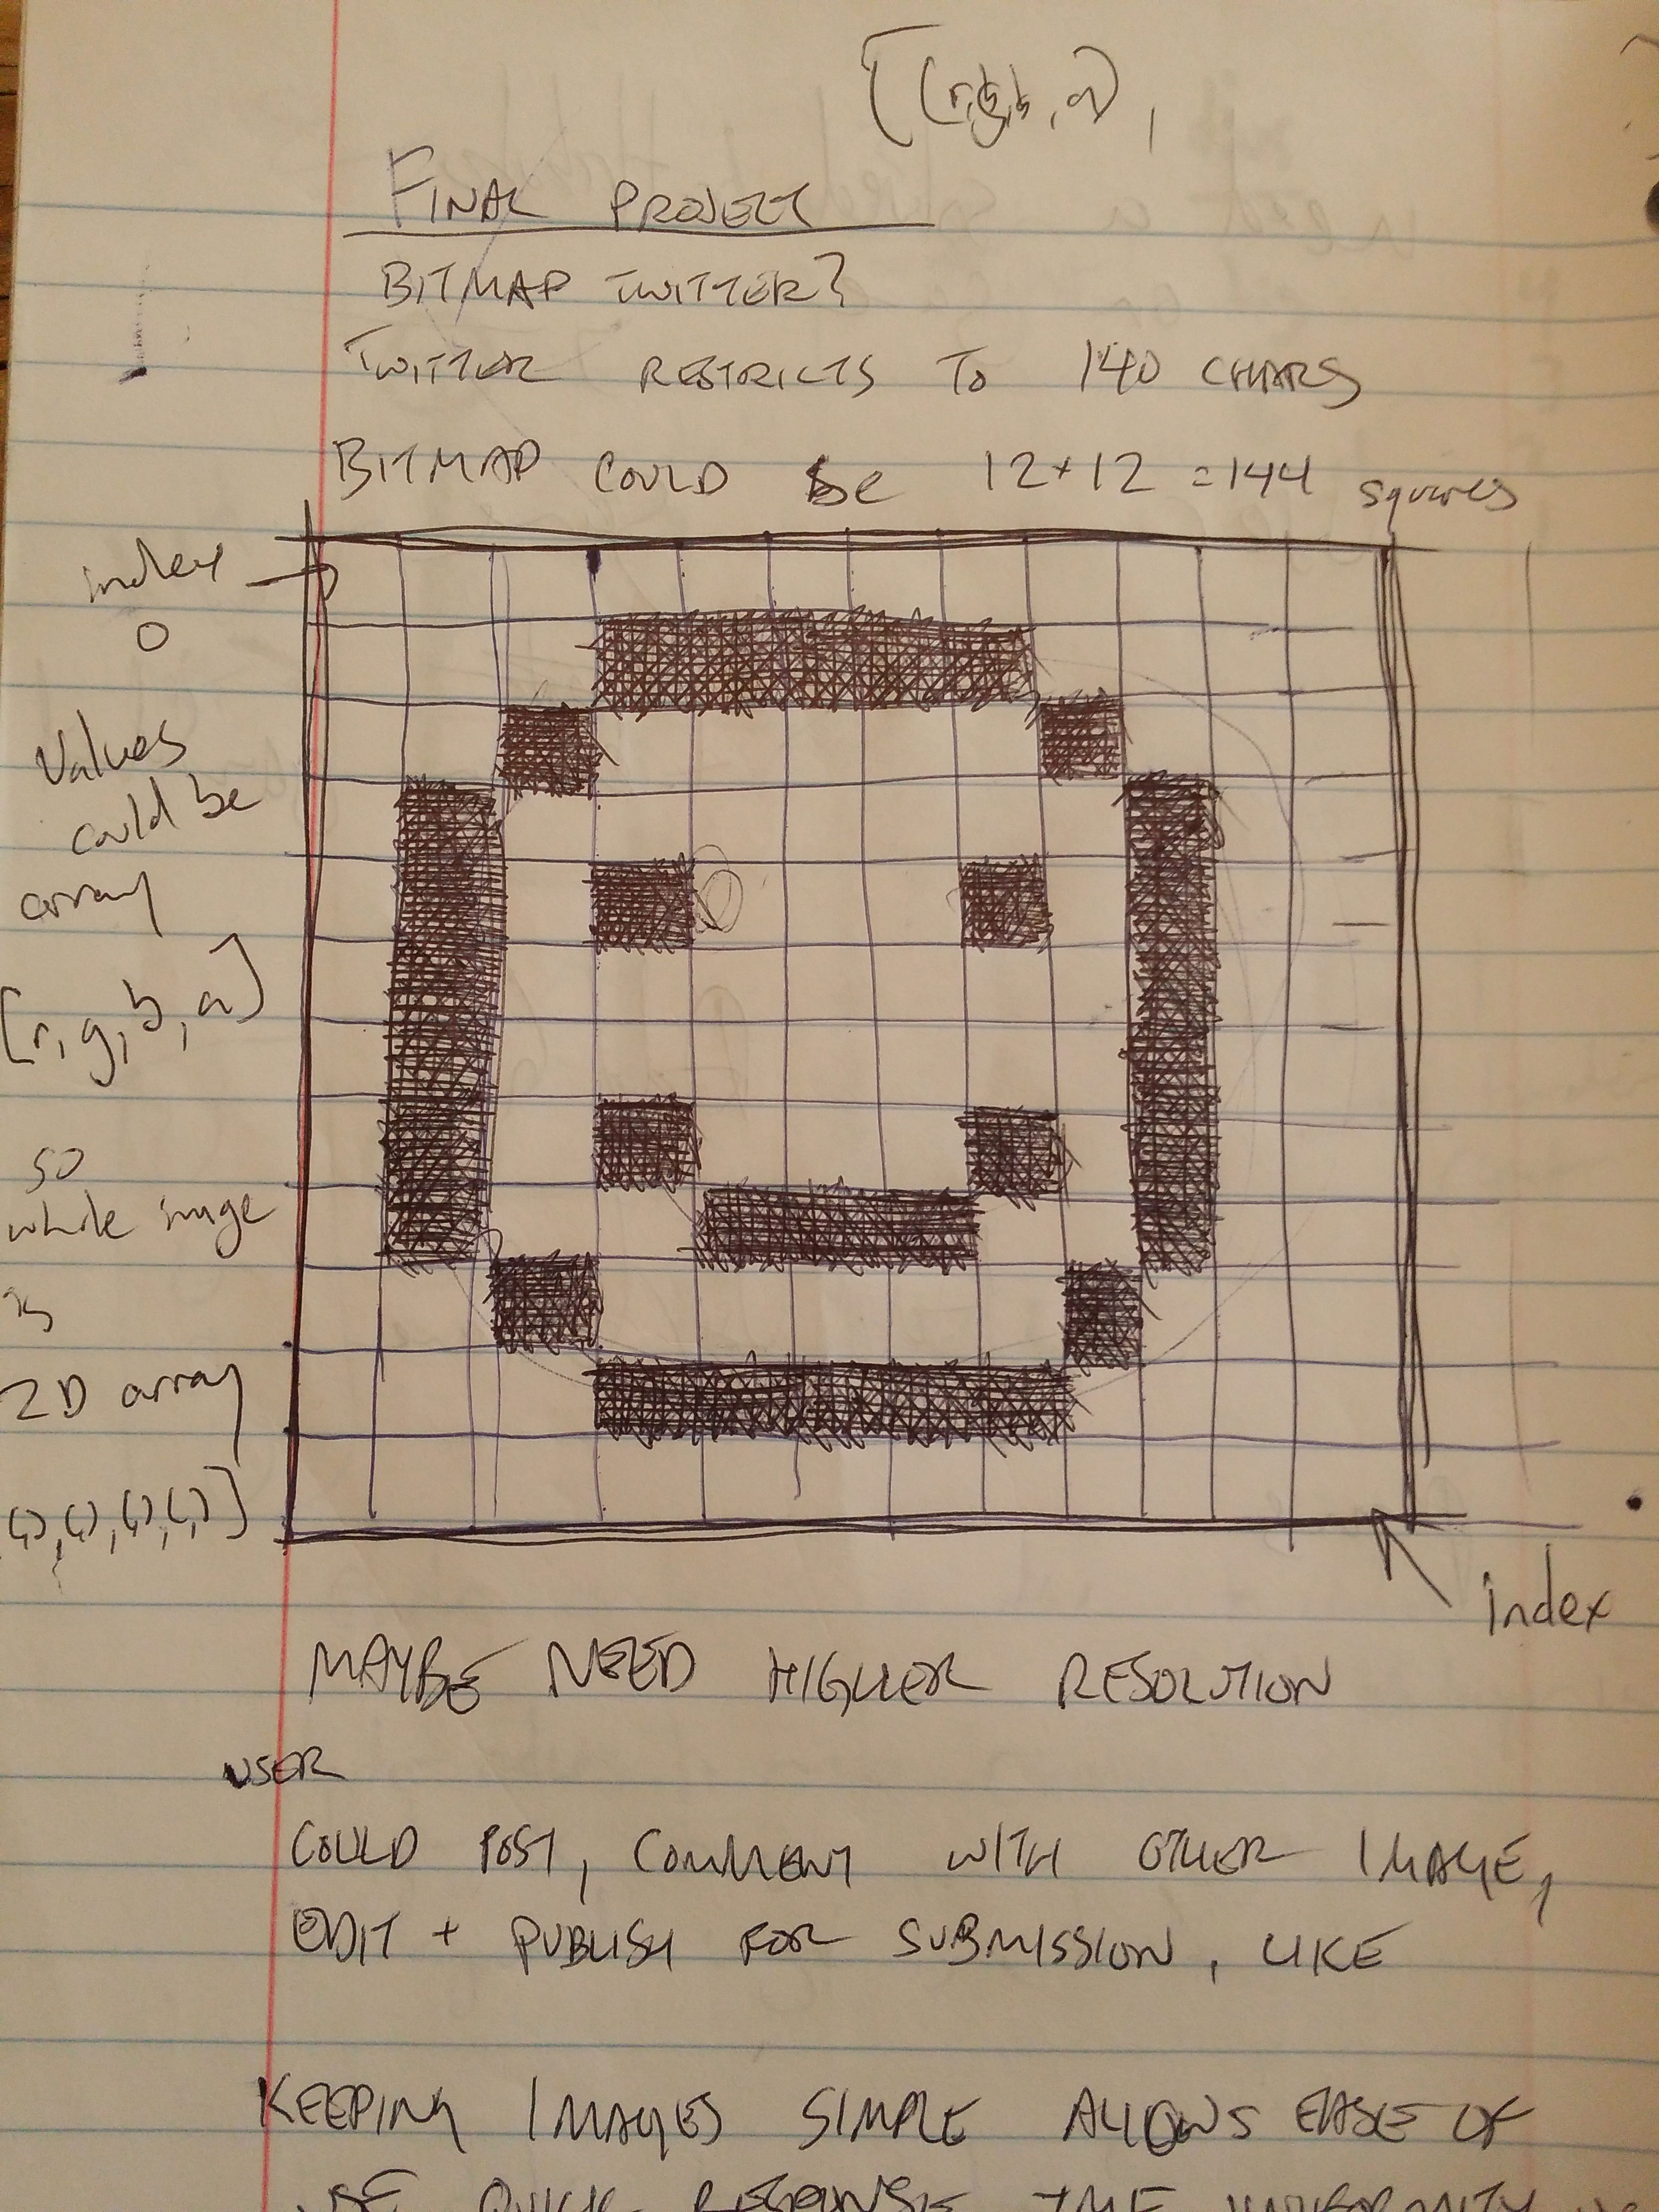 [(r,g,b,a),
FINAL PROJECT
BITMAP TWITTER?
TWITTER RESTRICTS TO 140 CHARS
BITMAP COULD be 12 + 12 = 144 squares
index
0
Values
could be
array
[r,g,b,a]
so
whole image
is
2D array
(),(),(),()]
index
MAYBE NEED HIGHER RESOLUTION
USER
COULD POST, COMMENT WITH OTHER IMAGE,
EDIT + PUBLISH FOR SUBMISSION, LIKE
KEEPING IMAGES SIMPLE ALLOWS EASE OF
QUICK RESPONSE